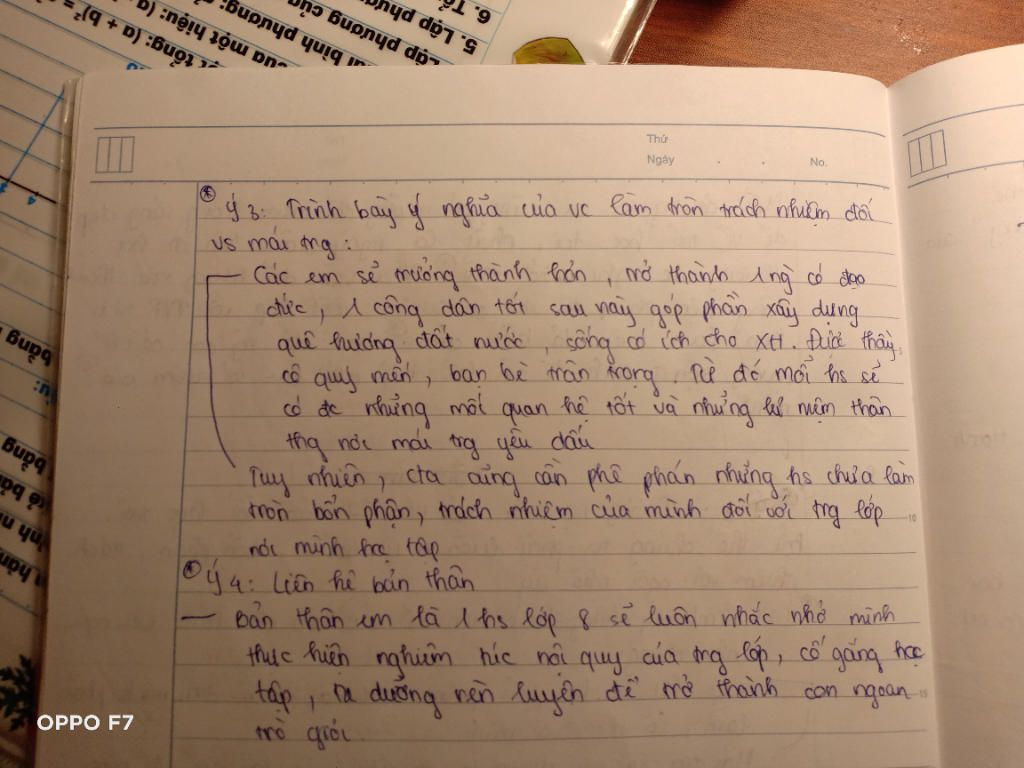 6. Tổ
5. Lập phương của
Lập phương
bình phương
của một hiệu: (a
tổng: (a + b)²
Thứ
Ngày . . No.
* Ý 3: Trình bày ý nghĩa của vc làm tròn trách nhiệm đối
vs mái trg :
Các em sẽ trưởng thành hơn, trở thành 1 ng` có đạo
đức, 1 công dân tốt sau này góp phần xây dựng
quê hương đất nước, sống có ích cho XH. Được thầy
cô quý mến, bạn bè trân trọng. Từ đó mỗi hs sẽ
có đc những mối quan hệ tốt và những kỉ niệm thân
thg nơi mái trg yêu dấu
Tuy nhiên, cta cũng cần phê phán những hs chưa làm
tròn bổn phận, trách nhiệm của mình đối với trg lớp
10
nơi mình học tập
* Ý 4: Liên hệ bản thân
— Bản thân em là 1 hs lớp 8 sẽ luôn nhắc nhở mình
thực hiện nghiêm túc nội quy của trg lớp, cố gắng học
tập, tu dưỡng rèn luyện để trở thành con ngoan
15
trò giỏi.
OPPO F7